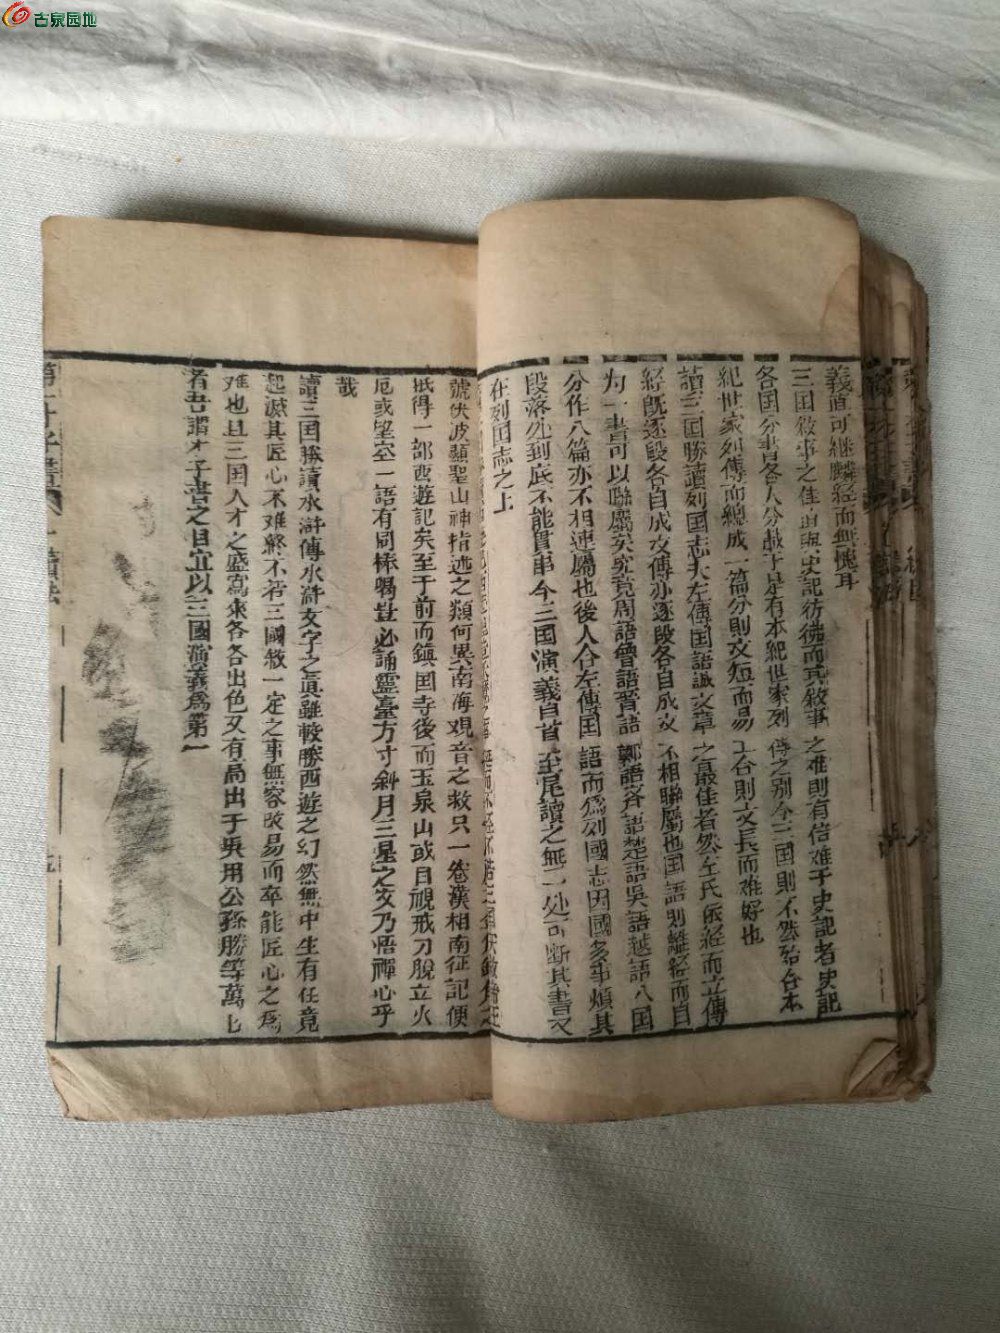 古泉园地
義直可継麟經而無愧耳
三国敘事之佳直與史記彷彿而其敘事之难則有倍难于史記者史記
各国分書各人分載于是有本紀世家列傳之别今三国則不然殆合本
紀世家列傳而總成一篇分則文短而易工合則文長而难好也
讀三国勝讀列国志夫左傳国語誠文章之最佳者然左氏依經而立傳
經既逐段各自成文傳亦逐段各自成文不相聯屬也国語則離經而自
为一書可以聯屬矣究竟周語魯語晋語鄭語齐語楚語吳語越語八国
分作八篇亦不相連屬也後人合左傳国語而爲列國志因國多事煩其
段落处到底不能貫串今三国演義自首至尾讀之無一处可断其書又
在列国志之上
號伏波顯聖山神指迷之類何異南海观音之救只一卷漢相南征記便
抵得一部西遊記矣至于前而鎮国寺後而玉泉山或目視戒刀脫立火
厄或望空一語有同棒喝豈必誦靈臺方寸斜月三星之文乃悟禪心乎
哉
讀三国勝讀水滸傳水滸文字之真雖較勝西遊之幻然無中生有任意
起滅其匠心不难終不若三國敘一定之事無容改易而卒能匠心之爲
难也且三国人才之盛寫來各各出色又有高出于吳用公孫勝等萬七
者吾謂才子書之目宜以三國演義爲第一